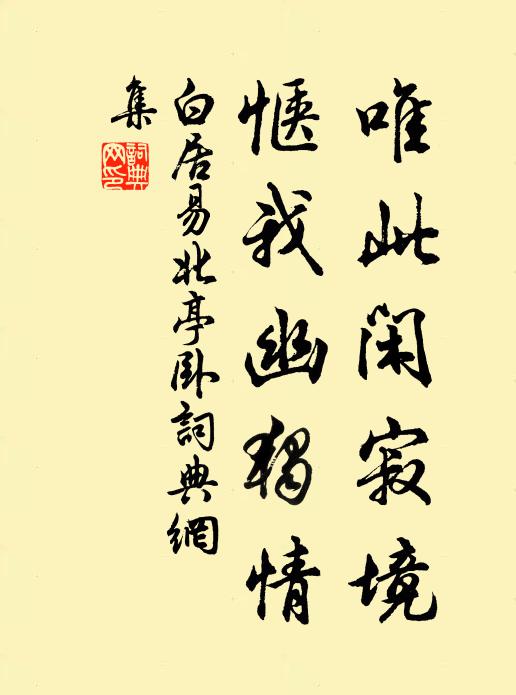 唯此闲寂境
惬我幽独情
白居易北亭卧詞典網
集
詞典
网印